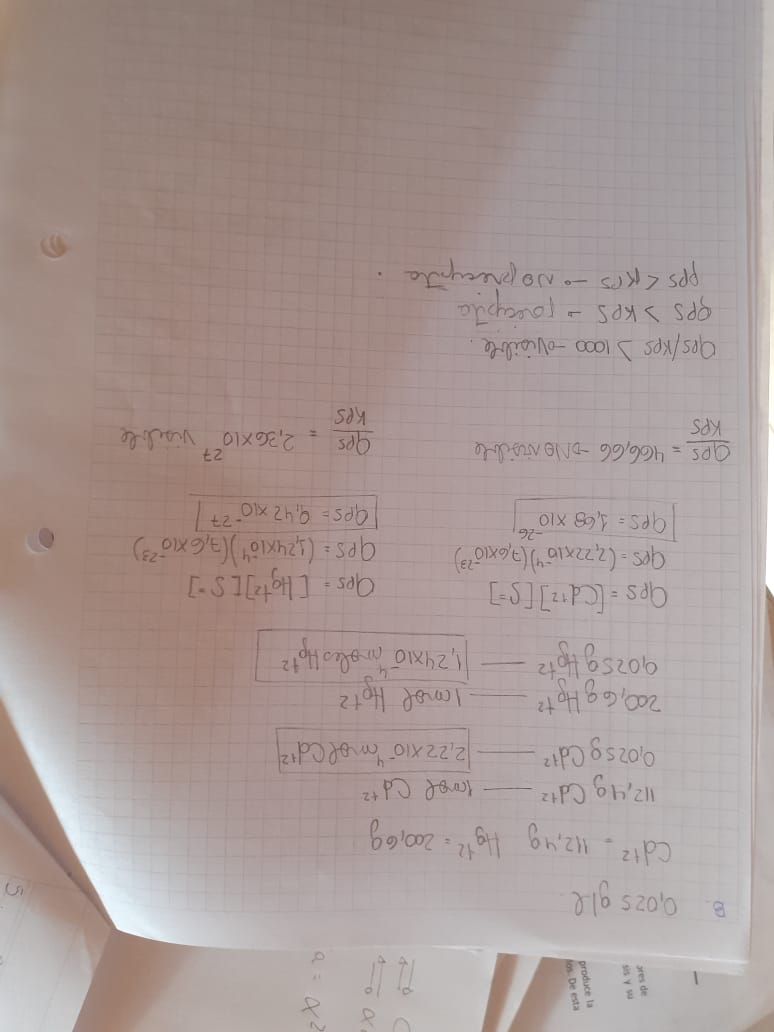 ores de
sis y su
produce la
los. De esta
a = x²
5.
B. 0,025 g/l.
Cd+2 = 112,4g Hg+2 = 200,6g
112,4g Cd+2 —— 1mol Cd+2
0,025g Cd+2 —— 2,22x10-4 mol Cd+2
200,6g Hg+2 —— 1mol Hg+2
0,025g Hg+2 —— 1,24x10-4 moles Hg+2
QPS = [Cd+2][S=] QPS = [Hg+2][S=]
QPS = (2,22x10-4)(7,6x10-23) QPS = (1,24x10-4)(7,6x10-23)
QPS = 1,68 x10-26 QPS = 9,42 x10-27
QPS/KPS = 466,66 → No visible QPS/KPS = 2,36x10 27 visible
QPS/KPS > 1000 → visible.
QPS > KPS → precipita
PPS < KPS → No precipita.